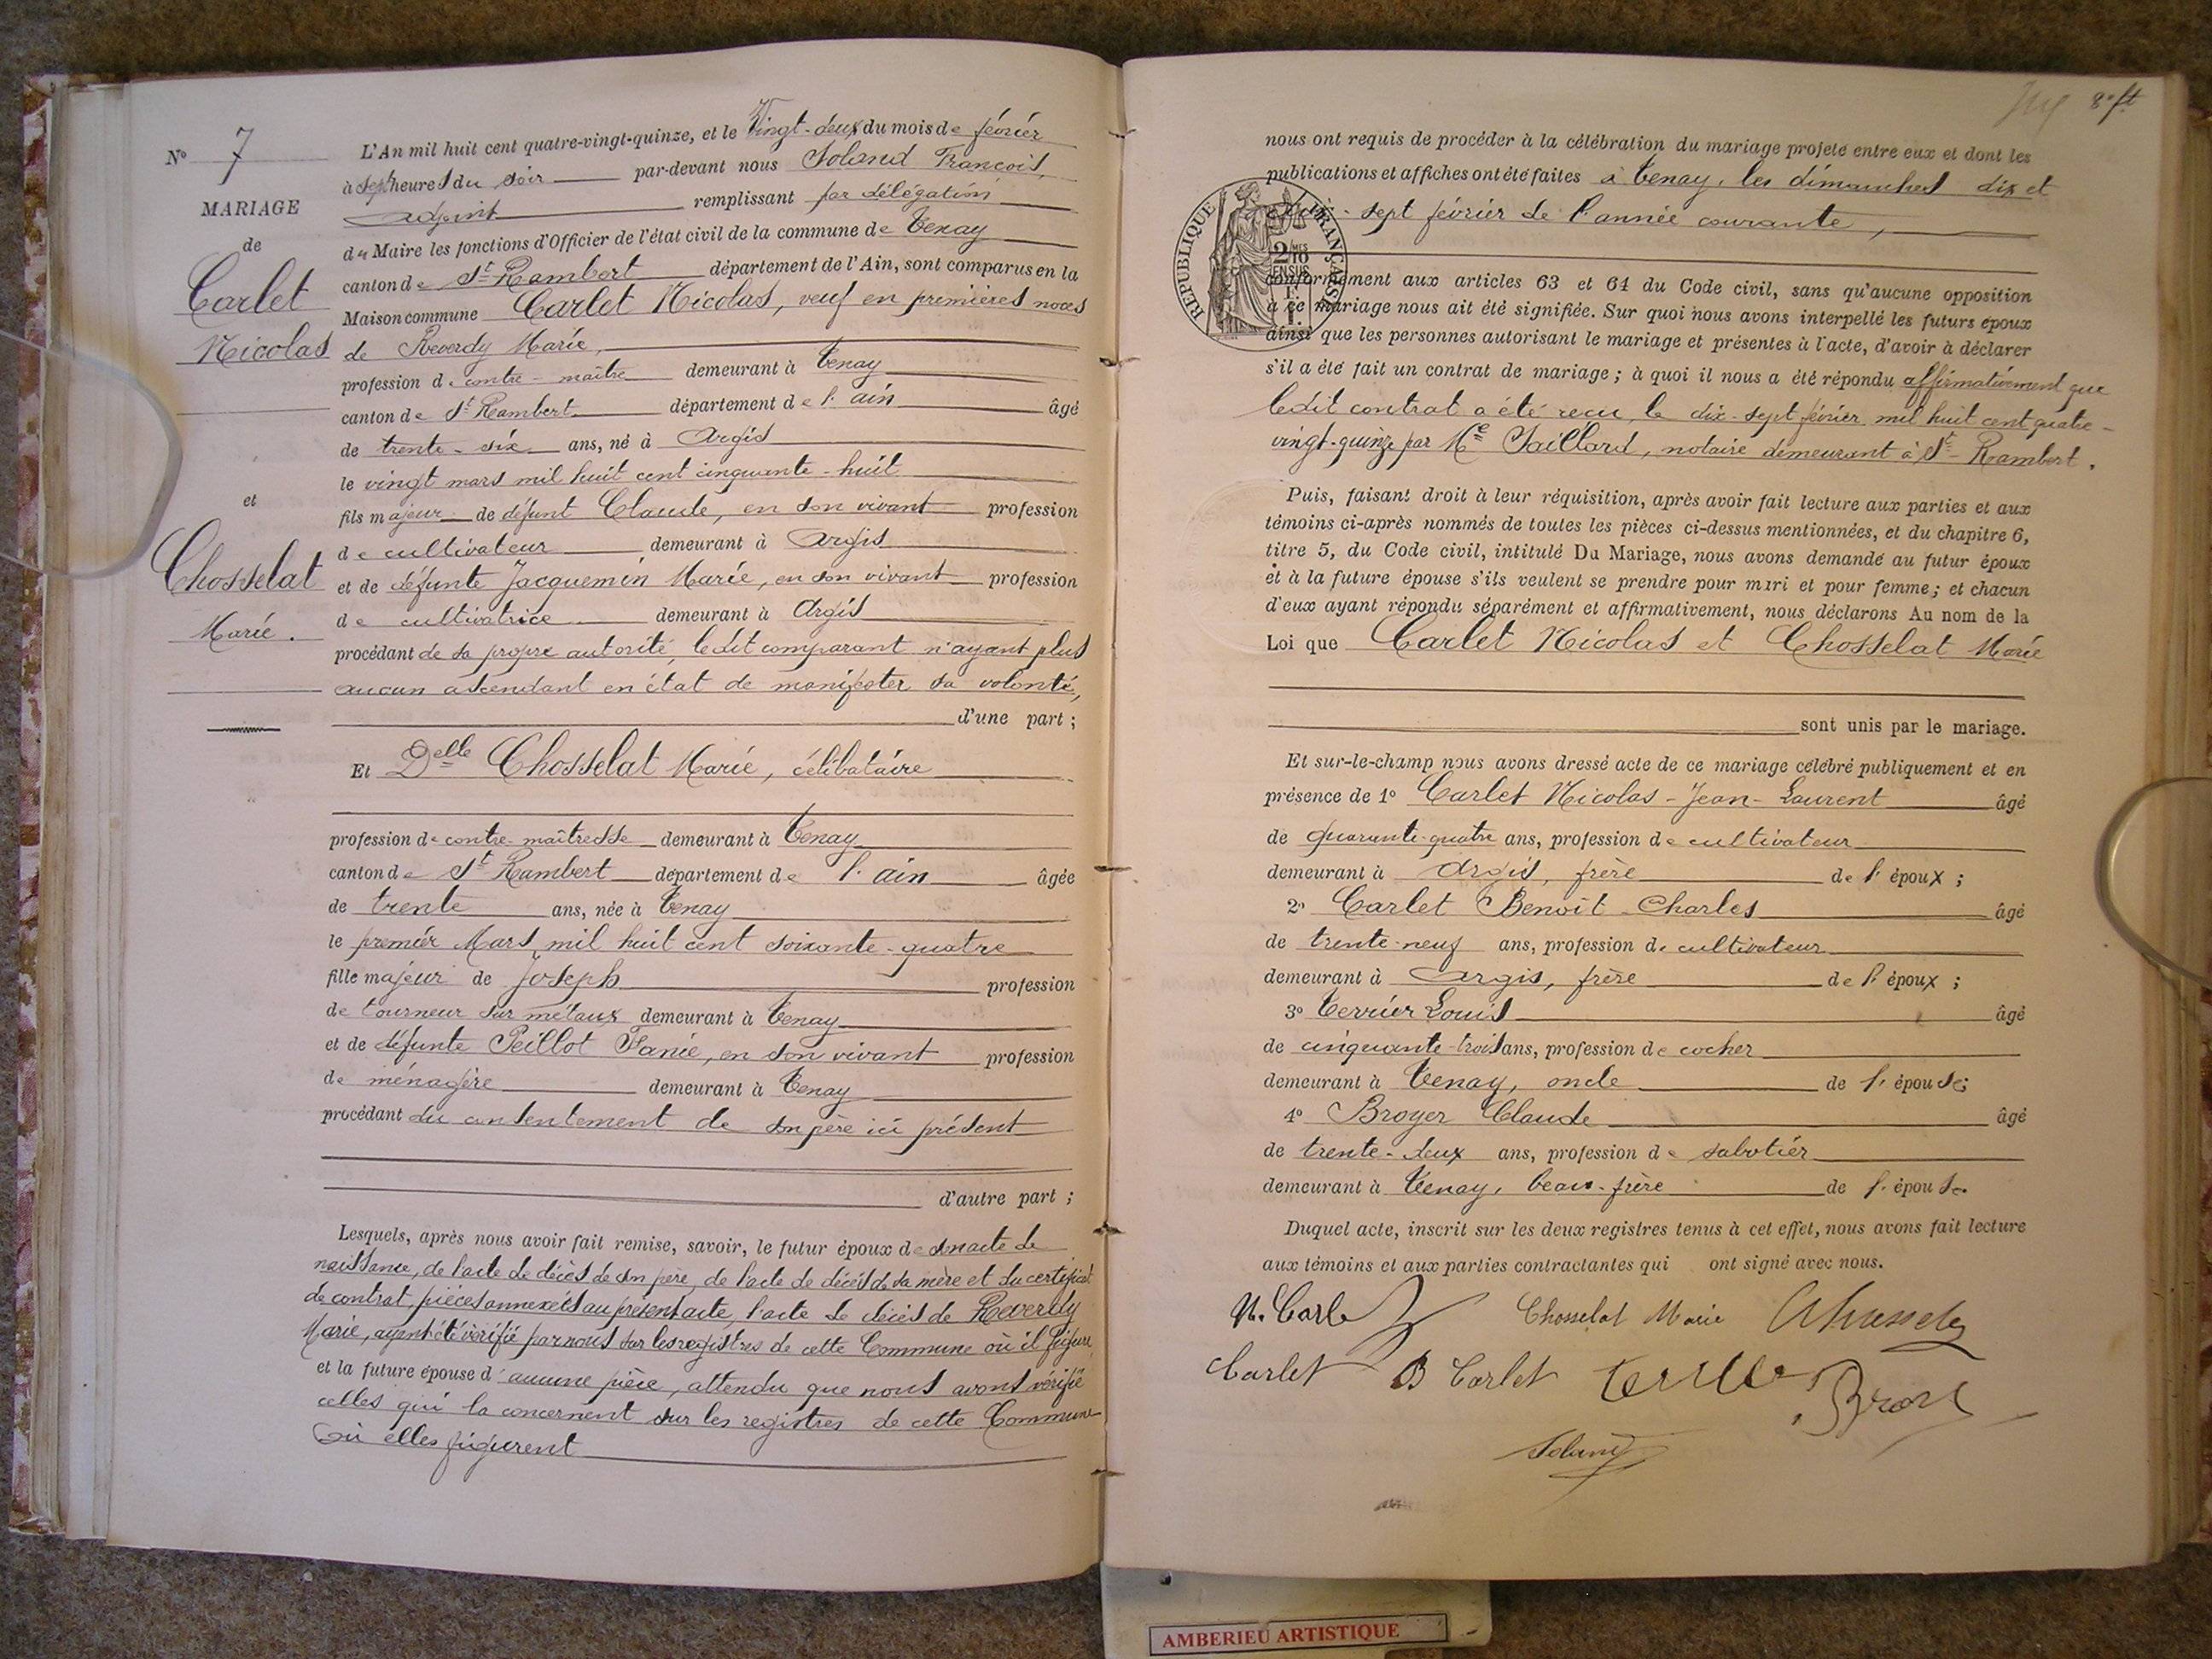 N° 7
MARIAGE
de
Carlet
Nicolas
et
Chosselat
Marie.
L'An mil huit cent quatre-vingt-quinze, et le Vingt-deux du mois de février
à sept heures du soir par-devant nous Soland François,
adjoint remplissant par délégation
du Maire les fonctions d'Officier de l'état civil de la commune de Tenay
canton de St Rambert département de l'Ain, sont comparus en la
Maison commune Carlet Nicolas, veuf en premières noces
de Reverdy Marie,
profession de contre-maître demeurant à Tenay
canton de St Rambert département de l'ain âgé
de trente-six ans, né à Argis
le vingt mars mil huit cent cinquante-huit
fils majeur de défunt Claude, en son vivant profession
de cultivateur demeurant à Argis
et de défunte Jacquemin Marie, en son vivant profession
de cultivatrice demeurant à Argis
procédant de sa propre autorité, ledit comparant n'ayant plus
aucun ascendant en état de manifester sa volonté,
d'une part ;
Et Delle Chosselat Marie, célibataire
profession de contre-maîtresse demeurant à Tenay
canton de St Rambert département de l'ain âgée
de trente ans, née à Tenay
le premier Mars mil huit cent soixante-quatre
fille majeur de Joseph profession
de tourneur sur métaux demeurant à Tenay
et de défunte Peillot Fanie, en son vivant profession
de ménagère demeurant à Tenay
procédant du consentement de son père ici présent
d'autre part ;
Lesquels, après nous avoir fait remise, savoir, le futur époux de son acte de
naissance, de l'acte de décès de son père, de l'acte de décès de sa mère et du certificat
de contrat, pièces annexées au présent acte, l'acte de décès de Reverdy
Marie, ayant été vérifié par nous sur les registres de cette Commune où il figure,
et la future épouse d'aucune pièce, attendu que nous avons vérifié
celles qui la concernent sur les registres de cette Commune
où elles figurent
8e ft
nous ont requis de procéder à la célébration du mariage projeté entre eux et dont les
publications et affiches ont été faites à Tenay, les dimanches dix et
dix-sept février de l'année courante,
REPUBLIQUE FRANÇAISE
2/10mes EN SUS
1 F.
conformément aux articles 63 et 64 du Code civil, sans qu'aucune opposition
à ce mariage nous ait été signifiée. Sur quoi nous avons interpellé les futurs époux
ainsi que les personnes autorisant le mariage et présentes à l'acte, d'avoir à déclarer
s'il a été fait un contrat de mariage ; à quoi il nous a été répondu affirmativement que
ledit contrat a été reçu, le dix-sept février mil huit cent quatre-
vingt-quinze par Me Saillard, notaire demeurant à St-Rambert.
Puis, faisant droit à leur réquisition, après avoir fait lecture aux parties et aux
témoins ci-après nommés de toutes les pièces ci-dessus mentionnées, et du chapitre 6,
titre 5, du Code civil, intitulé Du Mariage, nous avons demandé au futur époux
et à la future épouse s'ils veulent se prendre pour mari et pour femme ; et chacun
d'eux ayant répondu séparément et affirmativement, nous déclarons Au nom de la
Loi que Carlet Nicolas et Chosselat Marie
sont unis par le mariage.
Et sur-le-champ nous avons dressé acte de ce mariage célébré publiquement et en
présence de 1° Carlet Nicolas-Jean-Laurent âgé
de quarante-quatre ans, profession de cultivateur
demeurant à Argis, frère de l'époux ;
2° Carlet Benoît-Charles âgé
de trente-neuf ans, profession de cultivateur
demeurant à Argis, frère de l'époux ;
3° Terrier Louis âgé
de cinquante-trois ans, profession de cocher
demeurant à Tenay, oncle de l'épouse ;
4° Broyer Claude âgé
de trente-deux ans, profession de sabotier
demeurant à Tenay, beau-frère de l'épouse.
Duquel acte, inscrit sur les deux registres tenus à cet effet, nous avons fait lecture
aux témoins et aux parties contractantes qui ont signé avec nous.
N. Carlet Chosselat Marie
Carlet B Carlet
Soland
AMBERIEU ARTISTIQUE